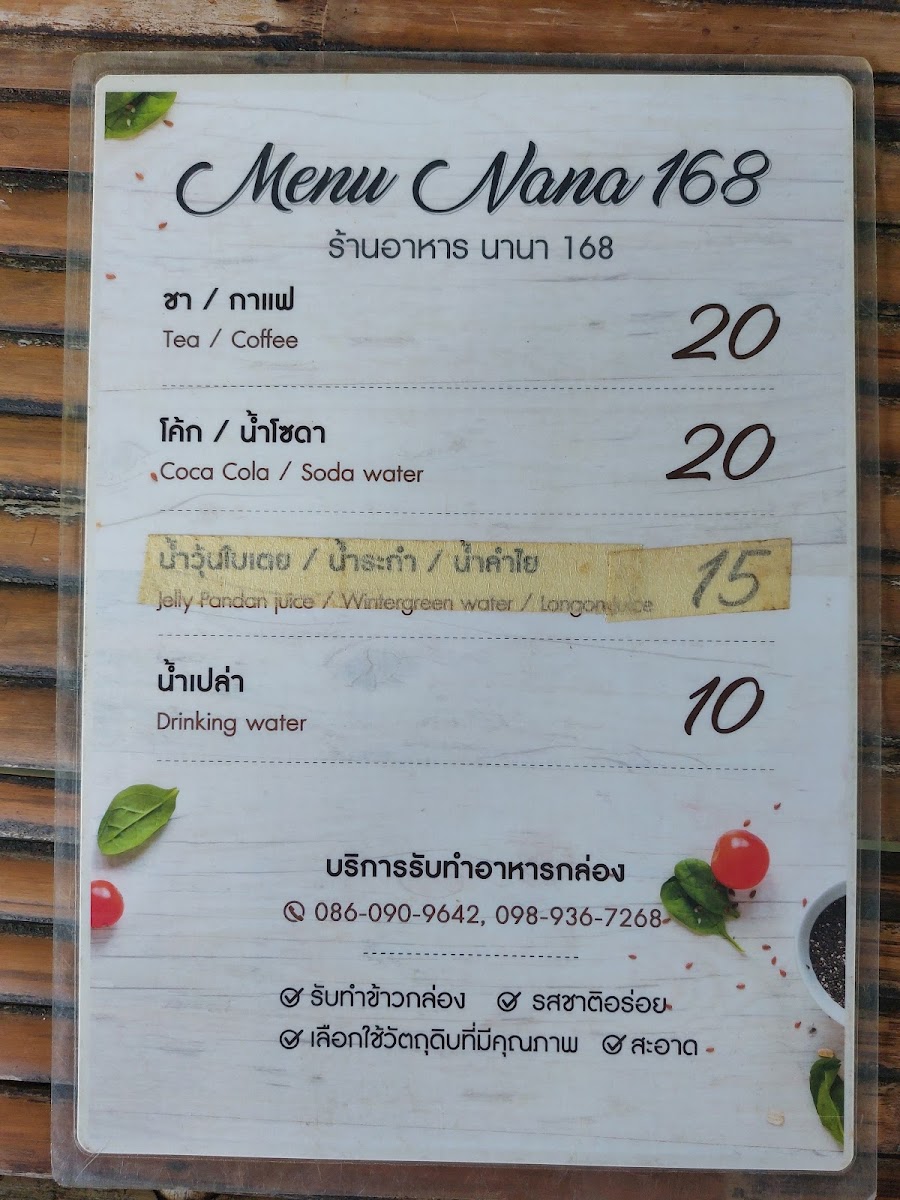 Menu Nana 168
ร้านอาหาร นานา 168
ชา / กาแฟ
Tea / Coffee
20
โค้ก / น้ำโซดา
Coca Cola / Soda water
20
น้ำวุ้นใบเตย / น้ำระกำ / น้ำลำไย
Jelly Pandan juice / Wintergreen water / Longon juice
15
น้ำเปล่า
Drinking water
10
บริการรับทำอาหารกล่อง
086-090-9642, 098-936-7268
รับทำข้าวกล่อง รสชาติอร่อย
เลือกใช้วัตถุดิบที่มีคุณภาพ สะอาด